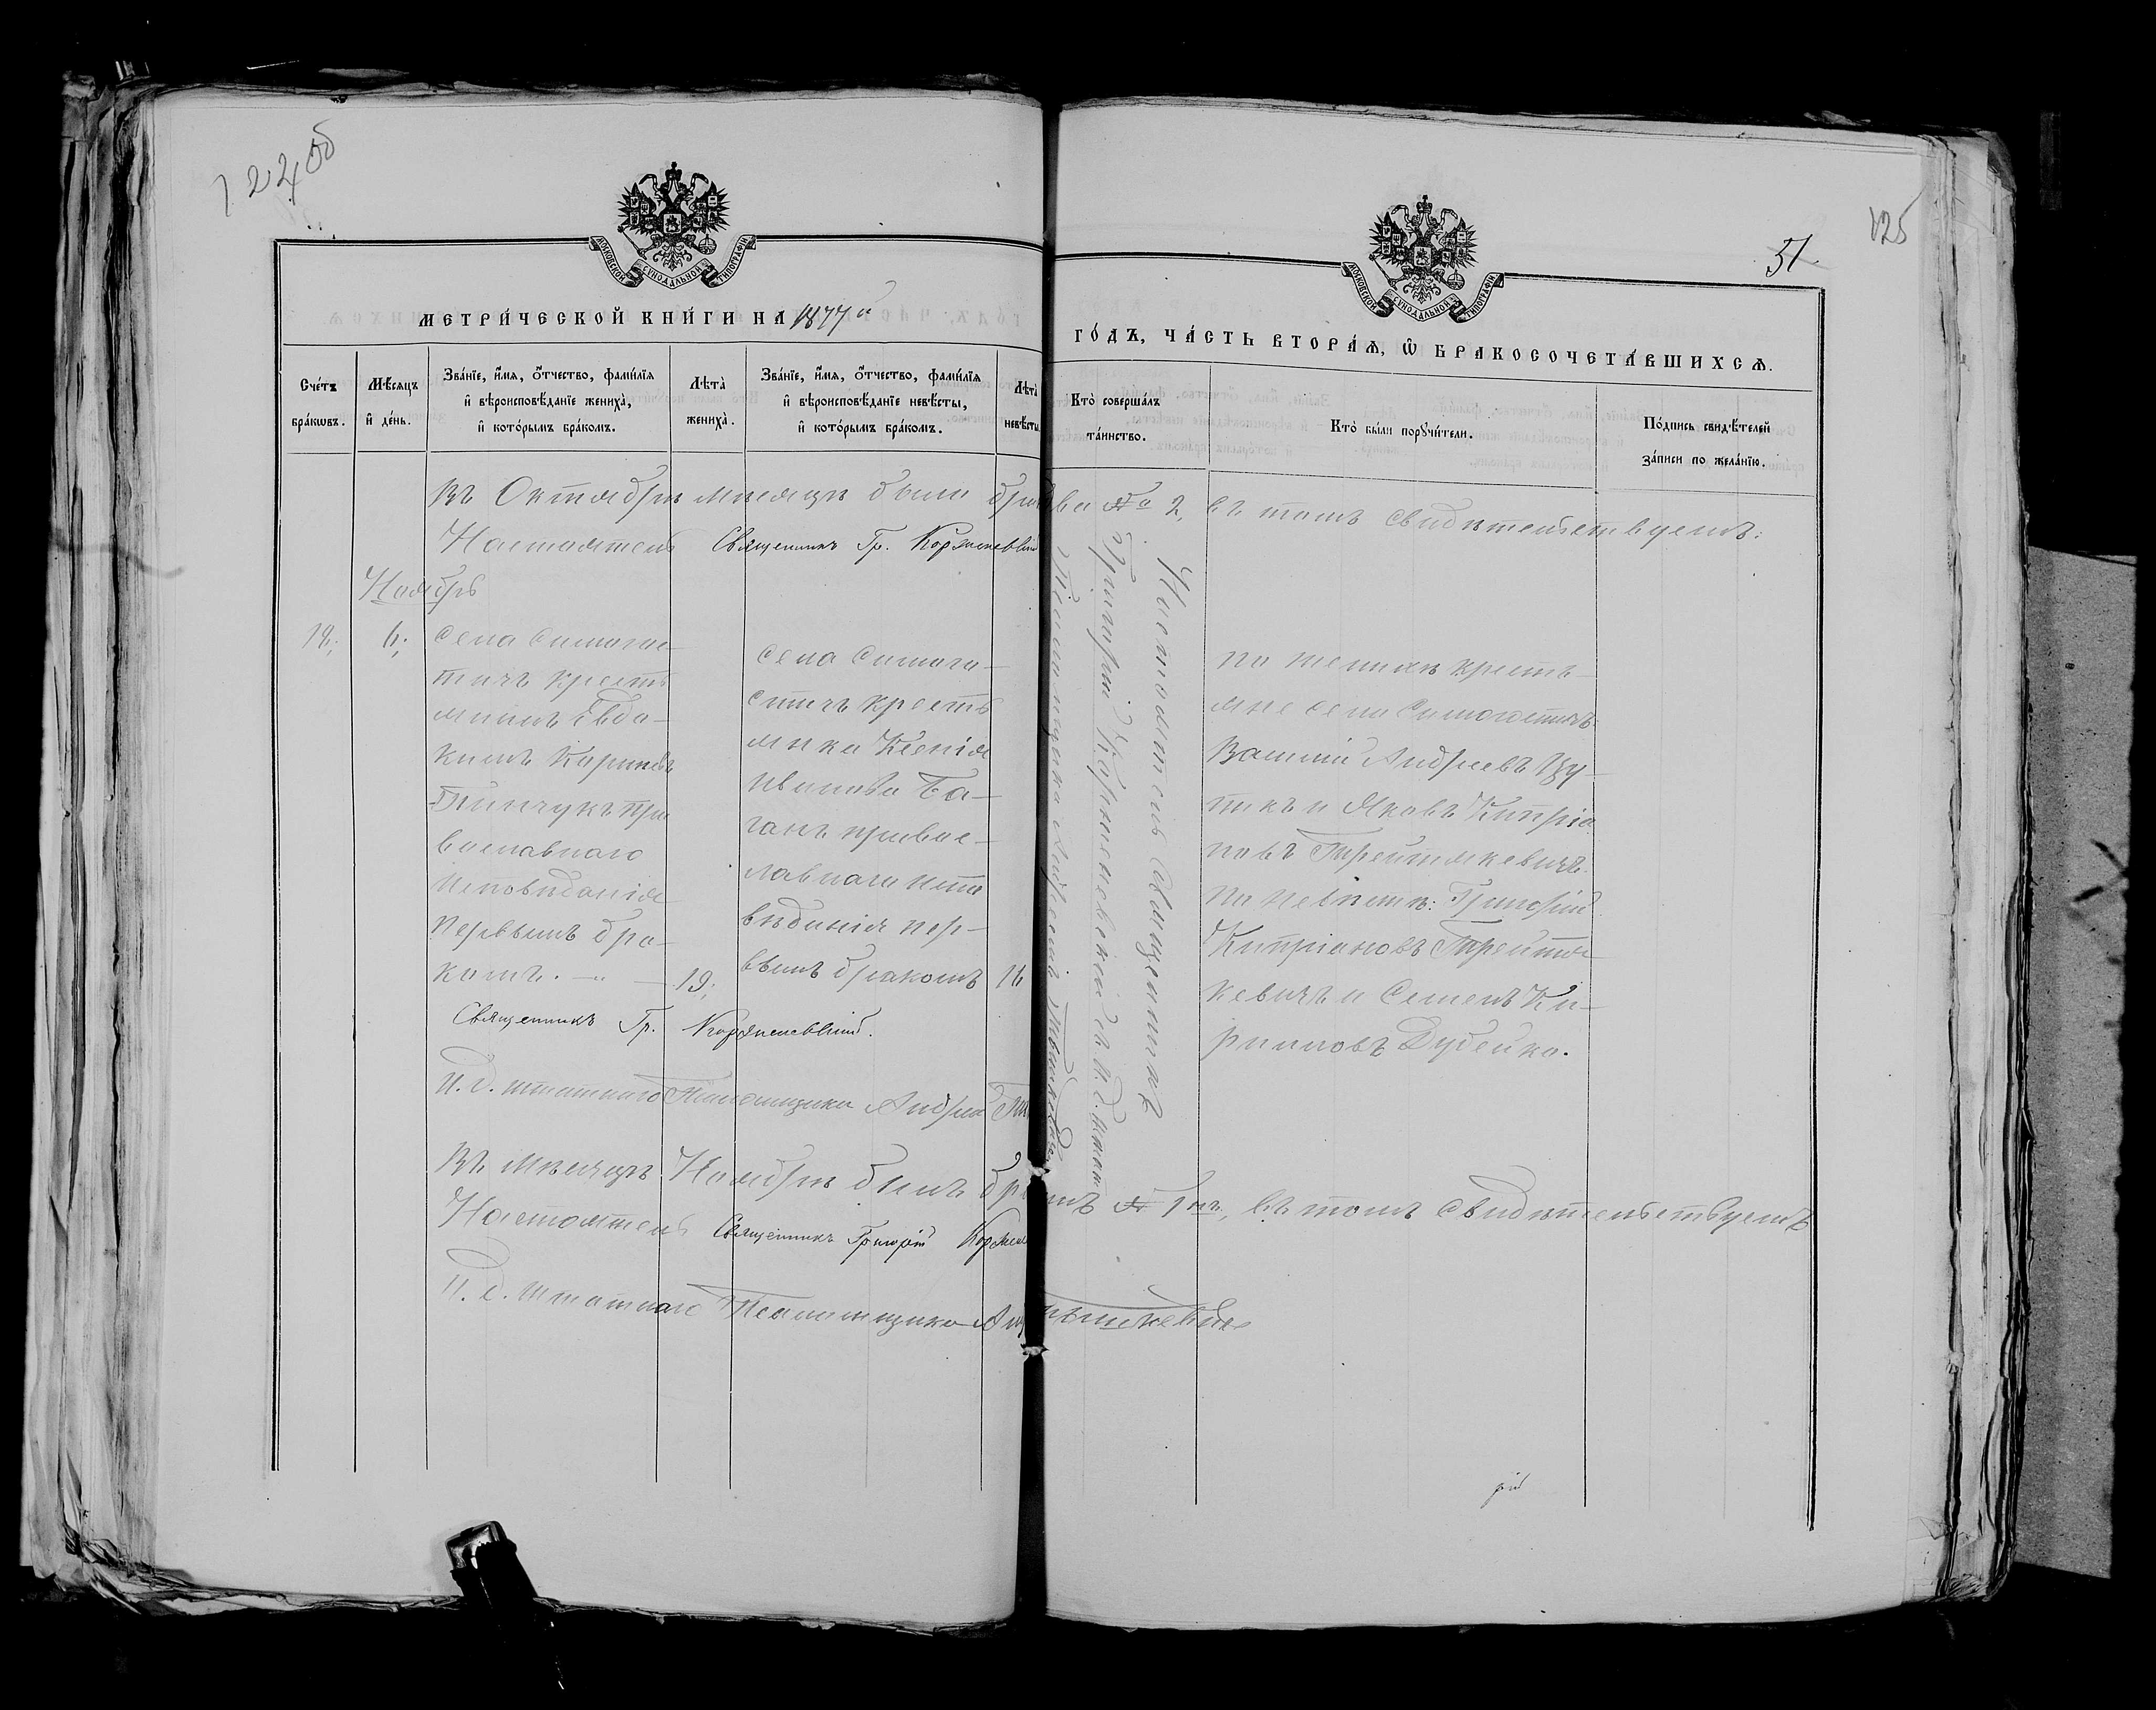 124об
125
51.
МОСКОВСКОЙ СѴНОДАЛЬНОЙ ТИПОГРАФІИ
МОСКОВСКОЙ СѴНОДАЛЬНОЙ ТИПОГРАФІИ
МЕТРИ́ЧЕСКОЙ КНИ́ГИ НА 1877й
ГО́ДЪ, ЧА́СТЬ ВТОРА́Ѧ, Ѽ БРАКОСОЧЕТА́ВШИХСѦ.
Сче́тъ
бра́кѡвъ.
Мѣ́сяцъ
и҆ де́нь.
Зва́нїе, и҆́мя, ѻ҆́тчество, фами́лїя
и҆ вѣроисповѣ́данїе жениха̀,
и҆ кото́рымъ бра́комъ.
Лѣ́та
жениха̀.
Зва́нїе, и҆́мя, ѻ҆́тчество, фами́лїя
и҆ вѣроисповѣ́данїе невѣ́сты,
и҆ кото́рымъ бра́комъ.
Лѣ́та
невѣ́сты
Кто̀ соверша́лъ
та́инство.
Кто̀ бы́ли порꙋчи́тели.
По́дпись свидѣ́телей
за́писи по жела́нїю.
Въ Октябрѣ мѣсяцѣ было брака № 2, въ томъ свидѣтельствуемъ:
Настоятель Священникъ Гр. Корженевскій
Ноябрь
12; 6;
села Симоги-
тичъ крестья
янинъ Евдо-
кимъ
Пинчукъ пра
вославнаго
исповѣданія
первымъ бра-
комъ. — " — 19;
села Симоги-
ститъ крестья
янка Ксенія
Иванова Ба-
ганъ правос-
лавнаго испо
вѣданія пер-
вымъ бракомъ 16
Настоятель Священникъ
Григорій Корженевскій съ И. д. штат
Псаломщика Андреемъ
по женихѣ крестья-
яне села
Василій Андреевъ
и Яковъ Кипріа
новъ Трейтякевичъ.
по невѣстѣ: Григорій
Кипріановъ Трейтя-
кевичъ и Семенъ Ки-
риловъ Дубейко.
Священникъ Гр. Корженевскій.
И. д. штатнаго Псаломщика Андрей
Въ мѣсяцѣ Ноябрѣ былъ бракъ № 1нъ, въ томъ свидѣтельствуемъ
Настоятель Священникъ Григорій Коржене
И. д. Штатнаго Псаломщика
рій